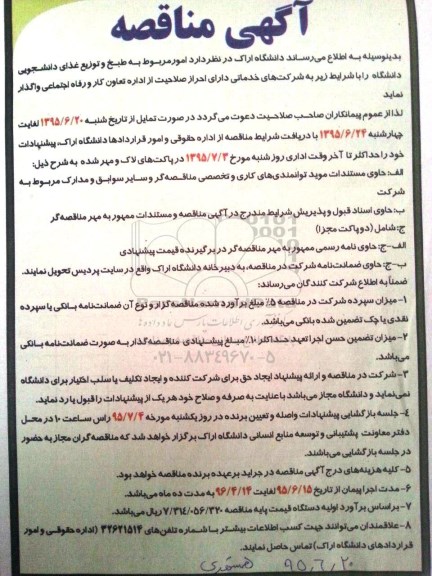 آگهی مناقصه
بدینوسیله به اطلاع می‌رساند دانشگاه اراک در نظر دارد امور مربوط به طبخ و توزیع غذای دانشجویی
دانشگاه را با شرایط زیر به شرکت‌های خدماتی دارای احراز صلاحیت از اداره تعاون کار و رفاه اجتماعی واگذار
نماید
لذا از عموم پیمانکاران صاحب صلاحیت دعوت می‌گردد در صورت تمایل از تاریخ شنبه ۱۳۹۵/۶/۲۰ لغایت
چهارشنبه ۱۳۹۵/۶/۲۴ با دریافت شرایط مناقصه از اداره حقوقی و امور قراردادها دانشگاه اراک، پیشنهادات
خود را حداکثر تا آخر وقت اداری روز شنبه مورخ ۱۳۹۵/۷/۳ در پاکت‌های لاک و مهر شده به شرح ذیل:
الف: حاوی مستندات موید توانمندی‌های کاری و تخصصی مناقصه‌گر و سایر سوابق و مدارک مربوط به
شرکت
ب: حاوی اسناد قبول و پذیرش شرایط مندرج در آگهی مناقصه و مستندات ممهور به مهر مناقصه‌گر
ج: شامل (دو پاکت مجزا)
الف-ج: حاوی نامه رسمی ممهور به مهر مناقصه‌گر در برگیرنده قیمت پیشنهادی
ب-ج: حاوی ضمانت‌نامه شرکت در مناقصه، به دبیرخانه دانشگاه اراک واقع در سایت پردیس تحویل نمایند.
ضمناً به اطلاع شرکت کنندگان می‌رساند:
۱- میزان سپرده شرکت در مناقصه ۵٪ مبلغ برآورد شده مناقصه گزار و نوع آن ضمانت‌نامه بانکی یا سپرده
نقدی یا چک تضمین شده بانکی می‌باشد.
۲- میزان تضمین حسن اجرا تعهد حداکثر ۱۰٪ مبلغ پیشنهادی مناقصه‌گذار به صورت ضمانت‌نامه بانکی
می‌باشد.
۰۲۱-۸۸۳۴۹۶۷۰-۵
۳- شرکت در مناقصه و ارائه پیشنهاد ایجاد حق برای شرکت کننده و ایجاد تکلیف یا سلب اختیار برای دانشگاه
نمی‌نماید و دانشگاه مجاز می‌باشد با عنایت به صرفه و صلاح خود هر یک از پیشنهادات را قبول یا رد نماید.
۴- جلسه بازگشایی پیشنهادات واصله و تعیین برنده در روز یکشنبه مورخه ۹۵/۷/۴ راس ساعت ۱۰ در محل
دفتر معاونت پشتیبانی و توسعه منابع انسانی دانشگاه اراک برگزار خواهد شد که مناقصه گران مجاز به حضور
در جلسه بازگشایی می‌باشند.
۵- کلیه هزینه‌های درج آگهی مناقصه در جراید بر عهده برنده مناقصه خواهد بود.
۶- مدت اجرا پیمان از تاریخ ۹۵/۶/۱۵ لغایت ۹۶/۴/۱۴ به مدت ده ماه می‌باشد.
۷- بر اساس برآورد اولیه دستگاه قیمت پایه مناقصه ۷/۳۱۴/۰۵۶/۳۲۰ ریال می‌باشد.
۸- علاقمندان می‌توانند جهت کسب اطلاعات بیشتر با شماره تلفن‌های ۳۲۶۲۱۵۱۴ (اداره حقوقی و امور
قراردادهای دانشگاه اراک) تماس حاصل نمایند.
۹۵،۶،۲۰